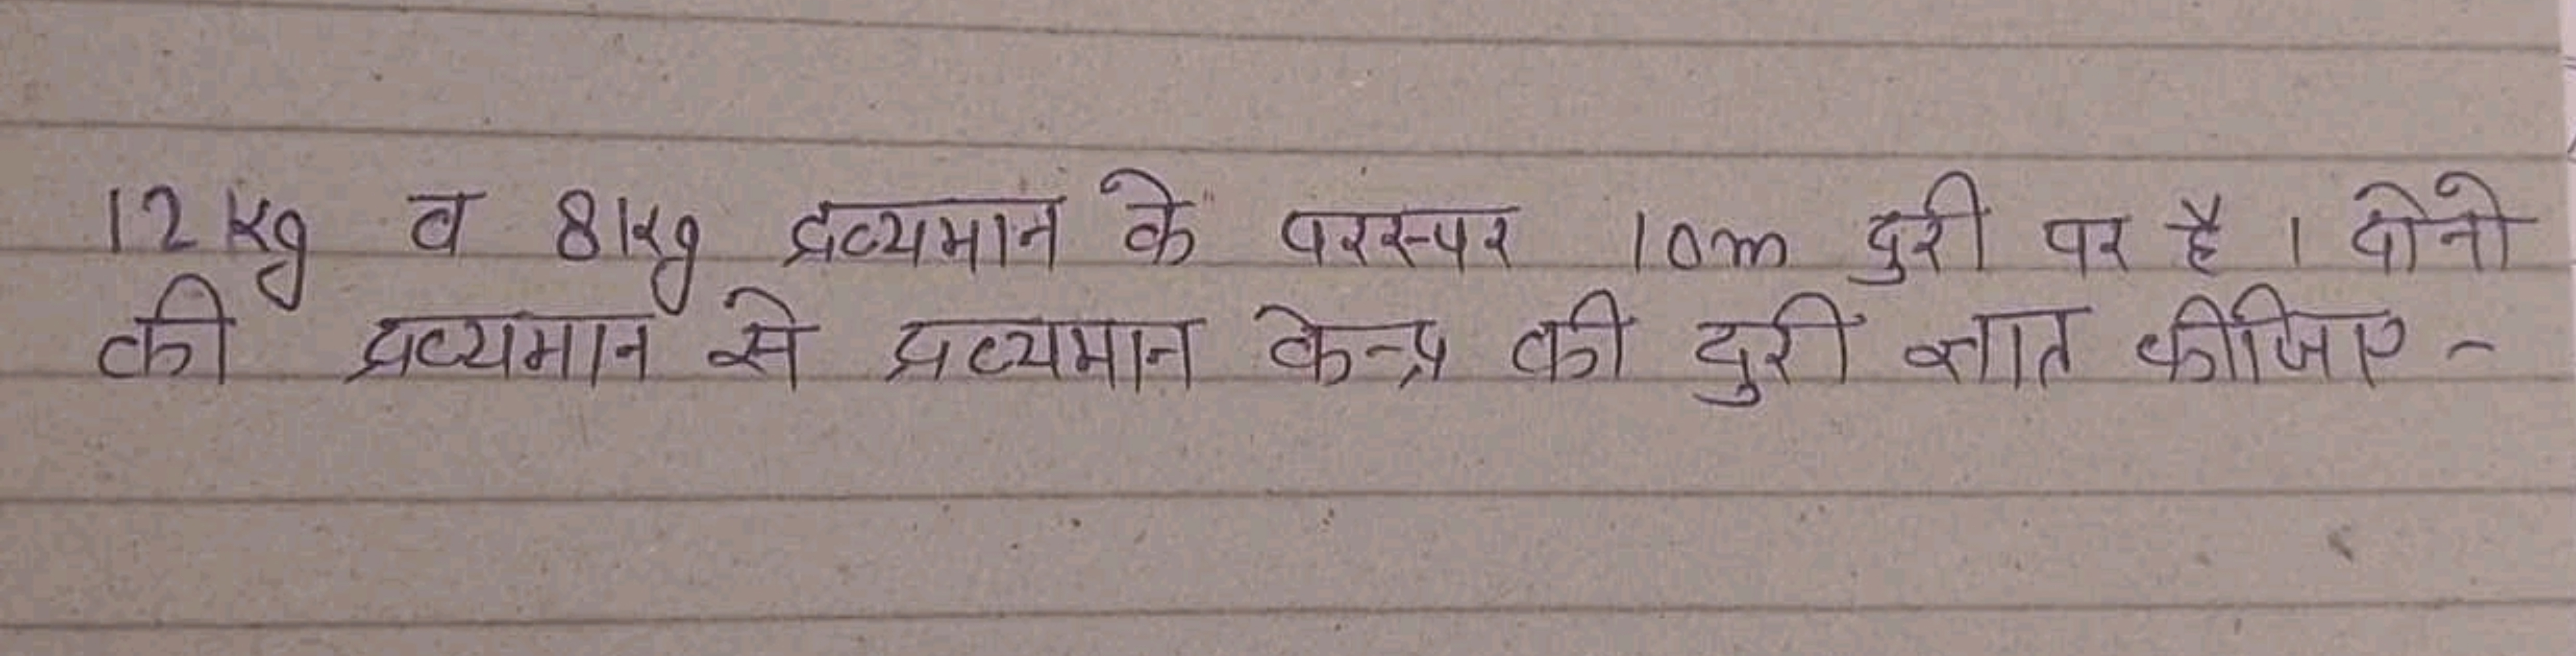 12 kg व 8 kg द्रव्यमान के परस्पर 10m दुरी पर है । दोनो
की द्रव्यमान से द्रव्यमान केन्द्र की दुरी ज्ञात कीजिए -